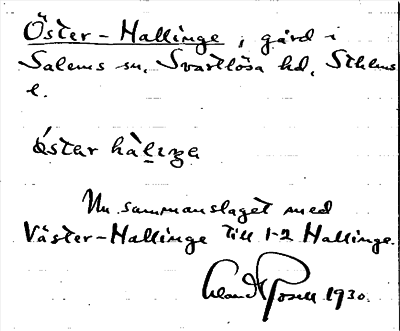 Öster-Hallinge, gård i
Salems sn, Svartlösa hd, Sthlms
l.
Nu sammanslaget med
Väster-Hallinge till 1-2 Hallinge.
1930.